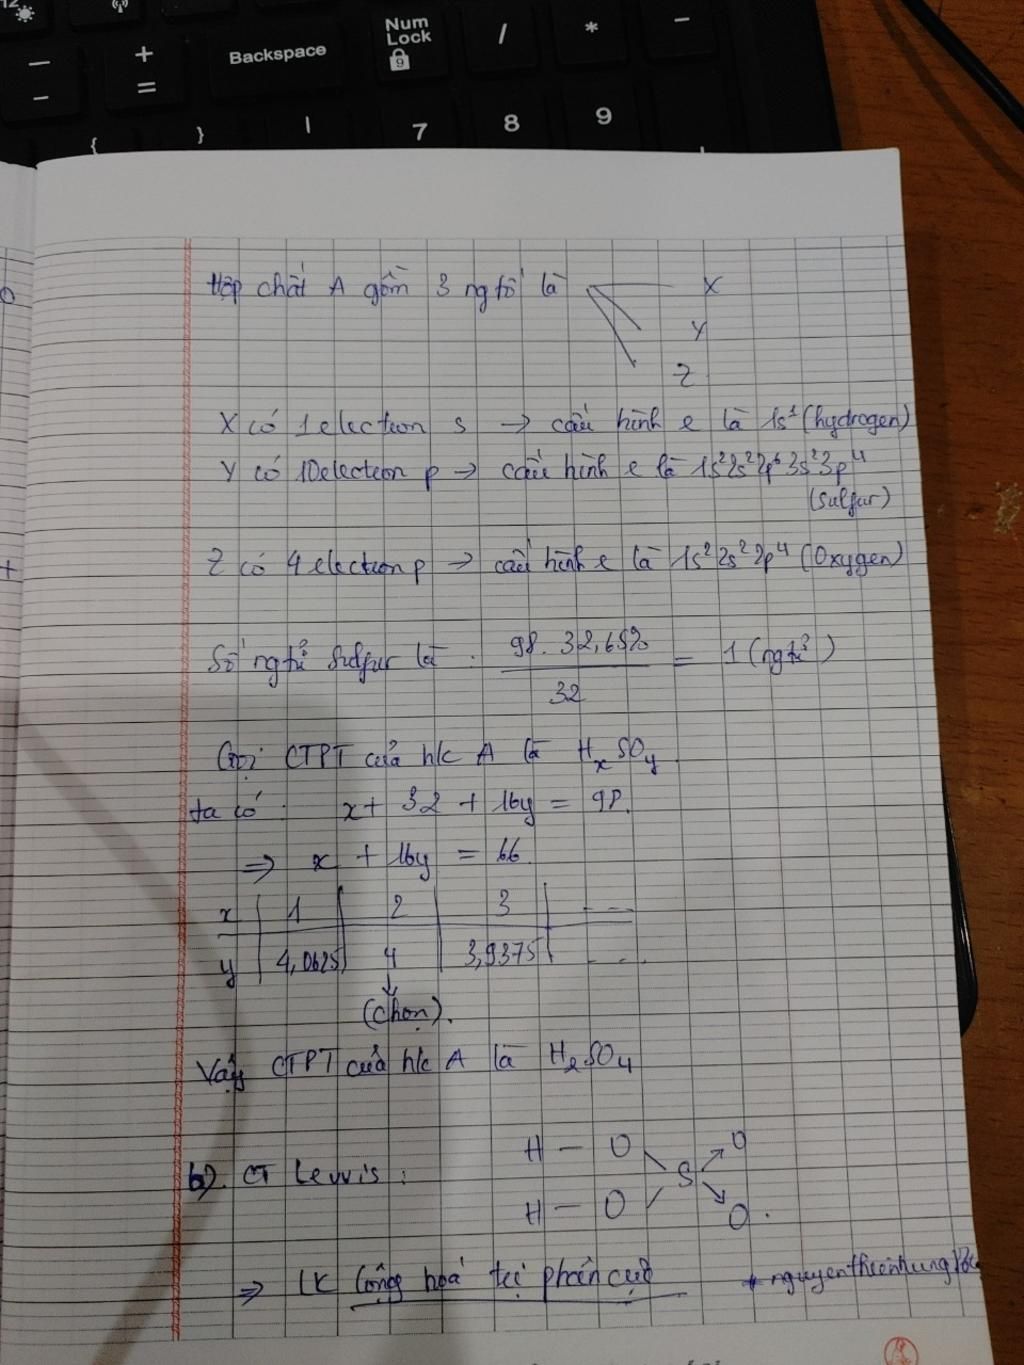 Num
Lock
9
Backspace
+
=
/
*
7
8
9
{
}
Hợp chất A gồm 3 ng tố là X
Y
Z
X có 1 electron s → cấu hình e là 1s¹ (hydrogen)
Y có 10 electron p → cấu hình e là 1s²2s²2p⁶3s²3p⁴
(Sulfur)
Z có 4 electron p → cấu hình e là 1s²2s²2p⁴ (Oxygen)
Số ng tử Sulfur là : 98 . 32,65% / 32 = 1 (ng tử)
Gọi CTPT của h/c A là HₓSOᵧ
ta có : x + 32 + 16y = 98.
⇒ x + 16y = 66.
x | 1 | 2 | 3 | ---
y | 4,0625 | 4 | 3,9375 | ...
↓
(chọn).
Vậy CTPT của h/c A là H₂SO₄
H — O O
b). CT Lewis : S
H — O O.
⇒ LK Cộng hoá trị phân cực